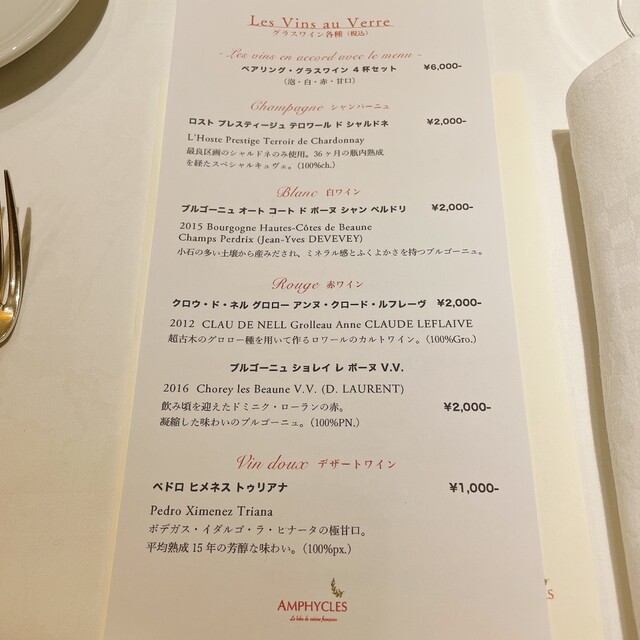 Les Vins au Verre
グラスワイン各種（税込）
- Les vins en accord avec le menu -
ペアリング・グラスワイン 4杯セット ¥6,000-
（泡・白・赤・甘口）
Champagne シャンパーニュ
ロスト プレスティージュ テロワール ド シャルドネ ¥2,000-
L'Hoste Prestige Terroir de Chardonnay
最良区画のシャルドネのみ使用。36ヶ月の瓶内熟成
を経たスペシャルキュヴェ。（100%ch.）
Blanc 白ワイン
ブルゴーニュ オート コート ド ボーヌ シャン ペルドリ ¥2,000-
2015 Bourgogne Hautes-Côtes de Beaune
Champs Perdrix (Jean-Yves DEVEVEY)
小石の多い土壌から産みだされ、ミネラル感とふくよかさを持つブルゴーニュ。
Rouge 赤ワイン
クロウ・ド・ネル グロロー アンヌ・クロード・ルフレーヴ ¥2,000-
2012 CLAU DE NELL Grolleau Anne CLAUDE LEFLAIVE
超古木のグロロー種を用いて作るロワールのカルトワイン。（100%Gro.）
ブルゴーニュ ショレイ レ ボーヌ V.V.
2016 Chorey les Beaune V.V. (D. LAURENT)
飲み頃を迎えたドミニク・ローランの赤。 ¥2,000-
凝縮した味わいのブルゴーニュ。（100%PN.）
Vin doux デザートワイン
ペドロ ヒメネス トゥリアナ ¥1,000-
Pedro Ximenez Triana
ボデガス・イダルゴ・ラ・ヒナータの極甘口。
平均熟成15年の芳醇な味わい。（100%px.）
AMPHYCLES